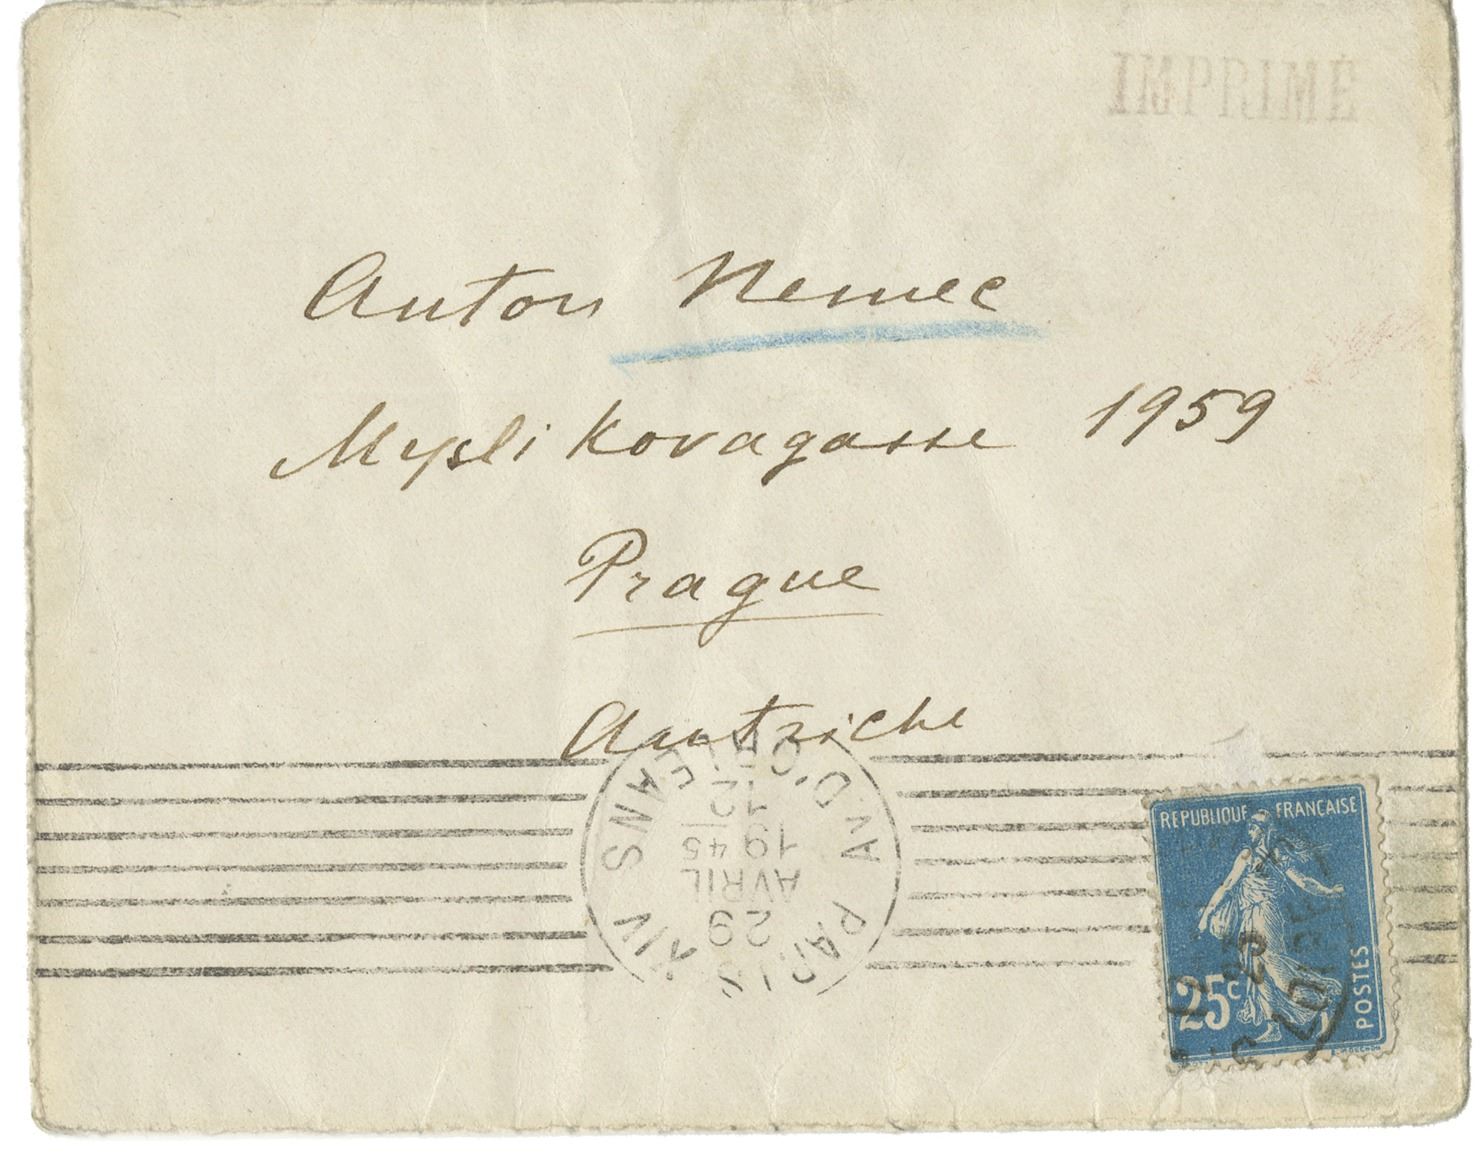 IMPRIMÉ
Anton Nemec
Myslikovagasse 1959
Prague
Autriche
PARIS XIV AV. D'ORLEANS
29
AVRIL
19 45
12
REPUBLIQUE FRANCAISE
25c
POSTES